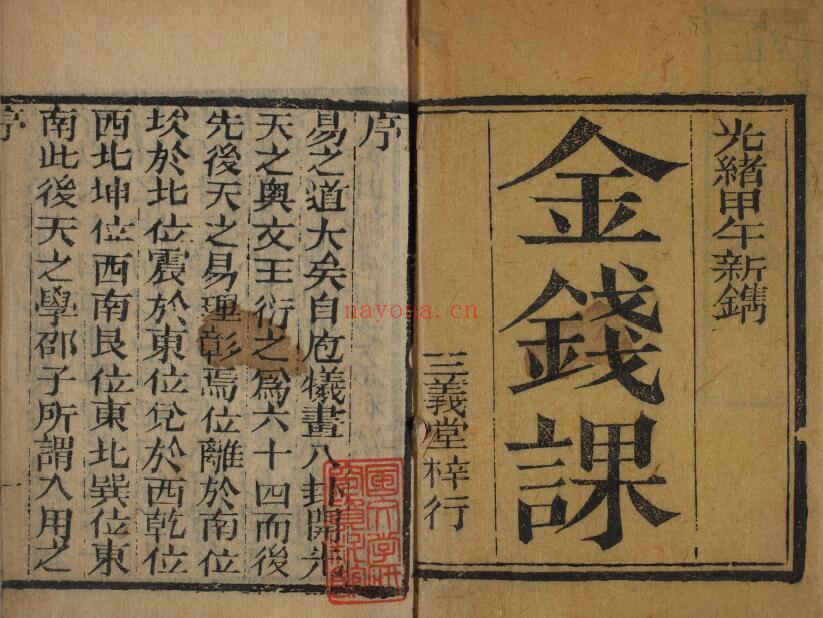 光緒甲午新鐫
金錢課
三義堂梓行
序
易之道大矣自庖犧畫八卦開先
天之奥文王衍之爲六十四而後
先後天之易理彰焉位離於南位
坎於北位震於東位兌於西乾位
西北坤位西南艮位東北巽位東
南此後天之學邵子所謂入用之
序
一
nayona.cn